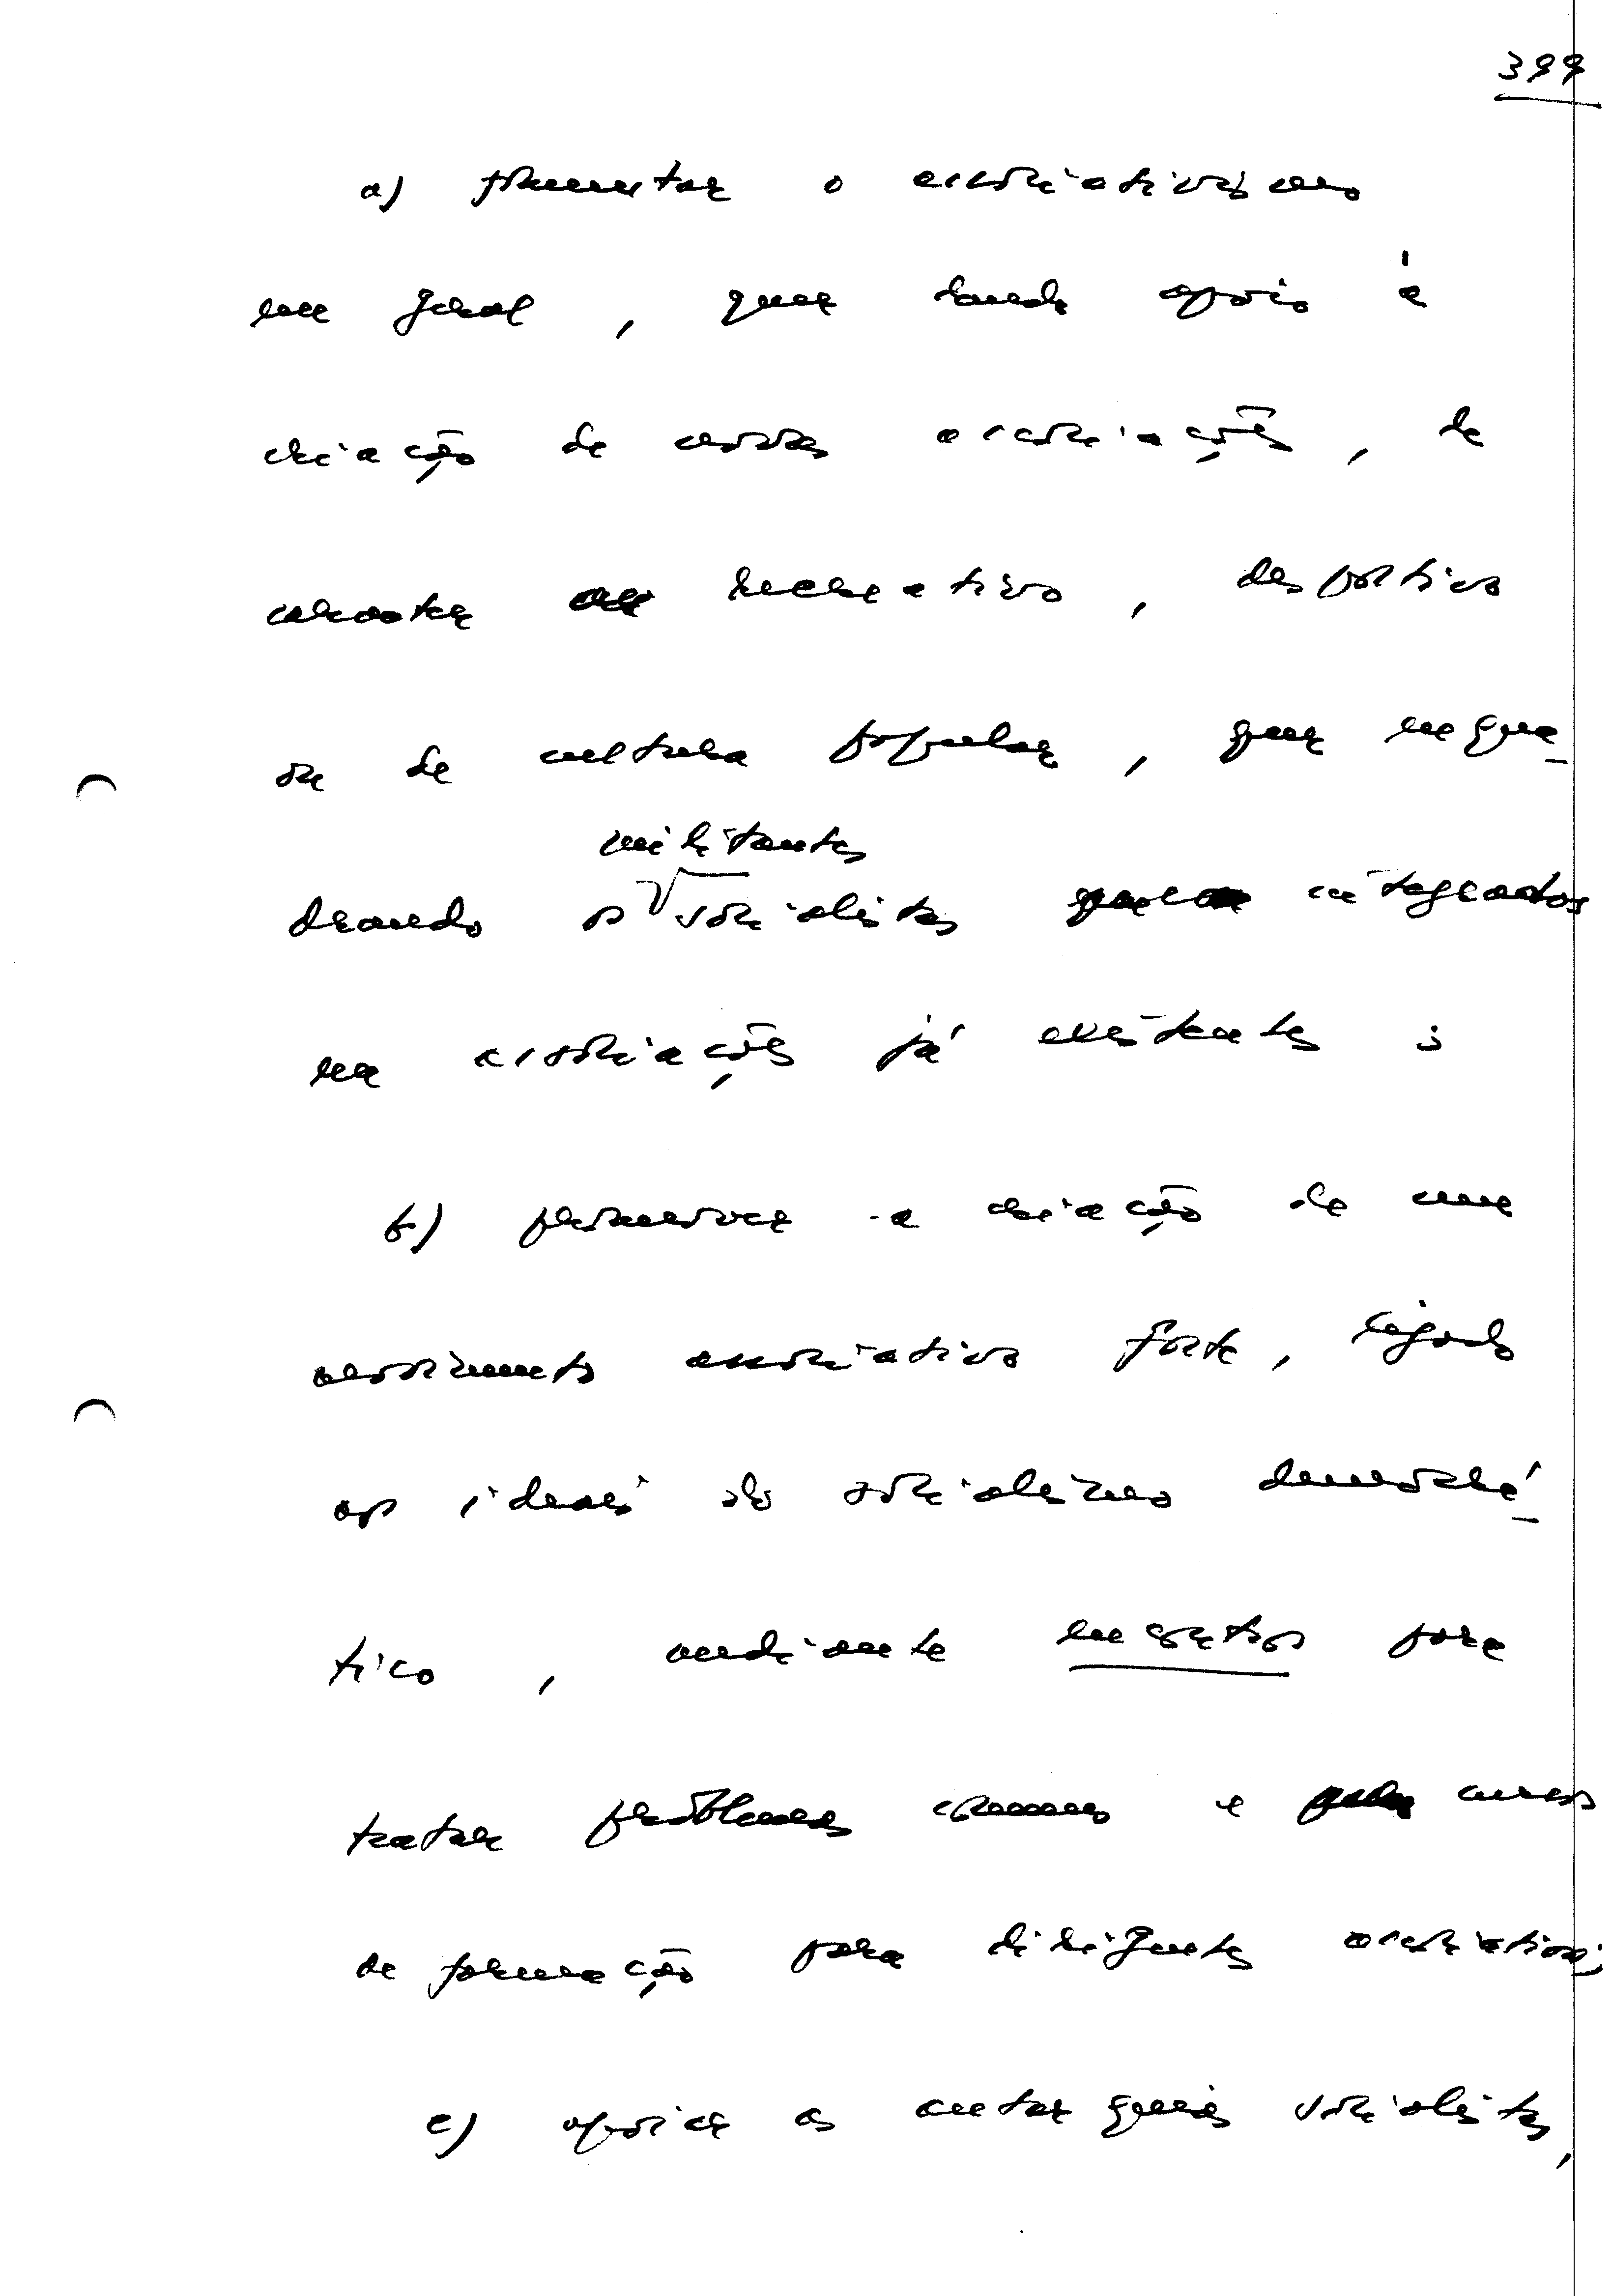 399
a) fomentar o associativismo
em geral, quer dando apoio à
criação de novas associações, de
caracter recreativo, desportivo
ou de cultura popular, quer enqua-
militantes
drando os socialistas integrados
em associações já existentes;
b) promover a criação de um
movimento associativo forte, ligado
aos ideais do socialismo democrá-
tico, mediante encontros para
tratar problemas comuns e cursos
de formação para dirigentes associativos;
c) apoiar as autarquias socialistas,